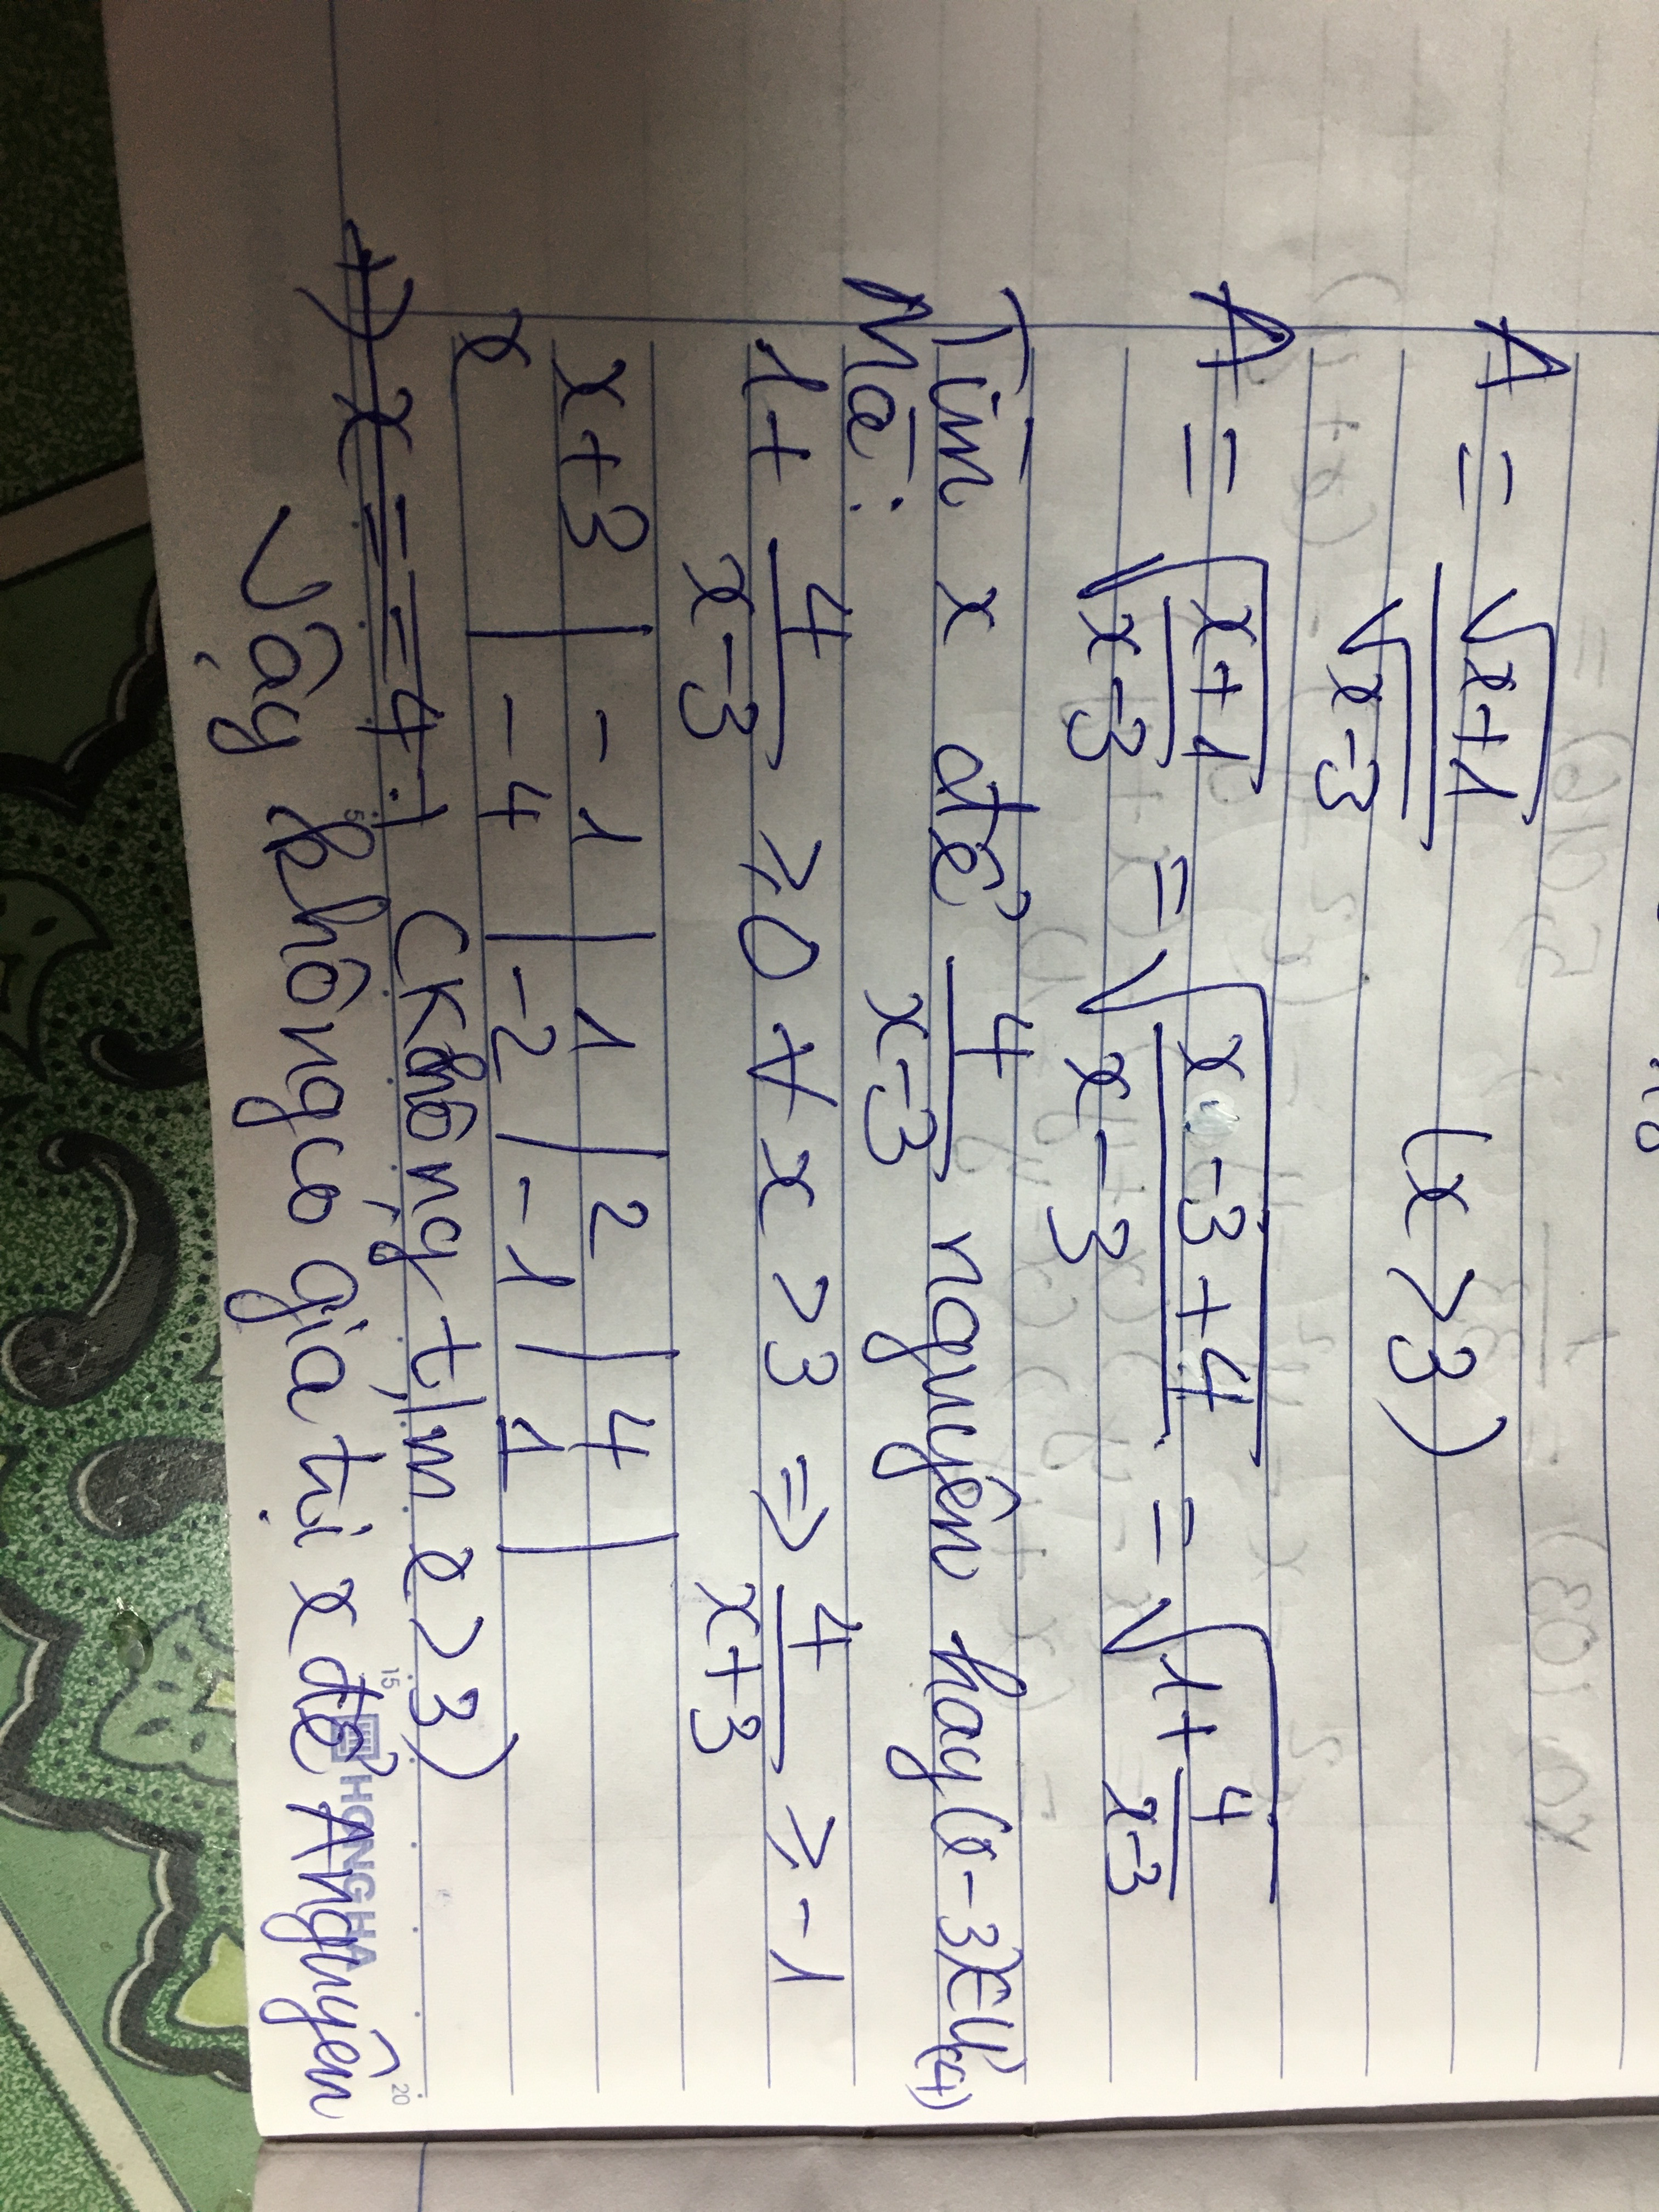 A = √x+1 / √x-3 (x > 3)
A = √(x+1 / x-3) = √(x-3+4 / x-3) = √(1+ 4 / x-3)
Tìm x để 4 / x-3 nguyên hay (x-3)∈Ư(4)
Mà:
1+ 4 / x-3 ⩾0 ∀ x >3 ⇒ 4 / x+3 ⩾ -1
x+3 | -1 | 1 | 2 | 4 |
x | -4 | -2 | -1 | 1 |
(Không t/m x>3)
Vậy không co gia trị x để A nguyên
HONG HA
5 15 20